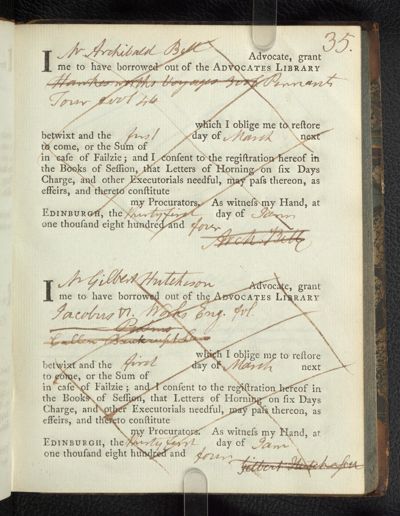 35.
I Mr Archibald Bell Advocate, grant
me to have borrowed out of the ADVOCATES LIBRARY
Hawkesworths Voyages Pennants
Tour
which I oblige me to reſtore
betwixt and the first day of March next
to come, or the Sum of
in caſe of Failzie; and I conſent to the regiſtration hereof in
the Books of Seſſion, that Letters of Horning on ſix Days
Charge, and other Executorials needful, may paſs thereon, as
effeirs, and thereto conſtitute
my Procurators. As witneſs my Hand, at
EDINBURGH, the thirty first day of Jany
one thouſand eight hundred and four
Arch. Bell
I Mr Gilbert Hutcheson Advocate, grant
me to have borrowed out of the ADVOCATES LIBRARY
Jacobus Works Eng. fol.
which I oblige me to reſtore
betwixt and the first day of March next
to come, or the Sum of
in caſe of Failzie; and I conſent to the regiſtration hereof in
the Books of Seſſion, that Letters of Horning on ſix Days
Charge, and other Executorials needful, may paſs thereon, as
effeirs, and thereto conſtitute
my Procurators. As witneſs my Hand, at
EDINBURGH, the thirty first day of Jany
one thouſand eight hundred and four
Gilbert Hutcheson